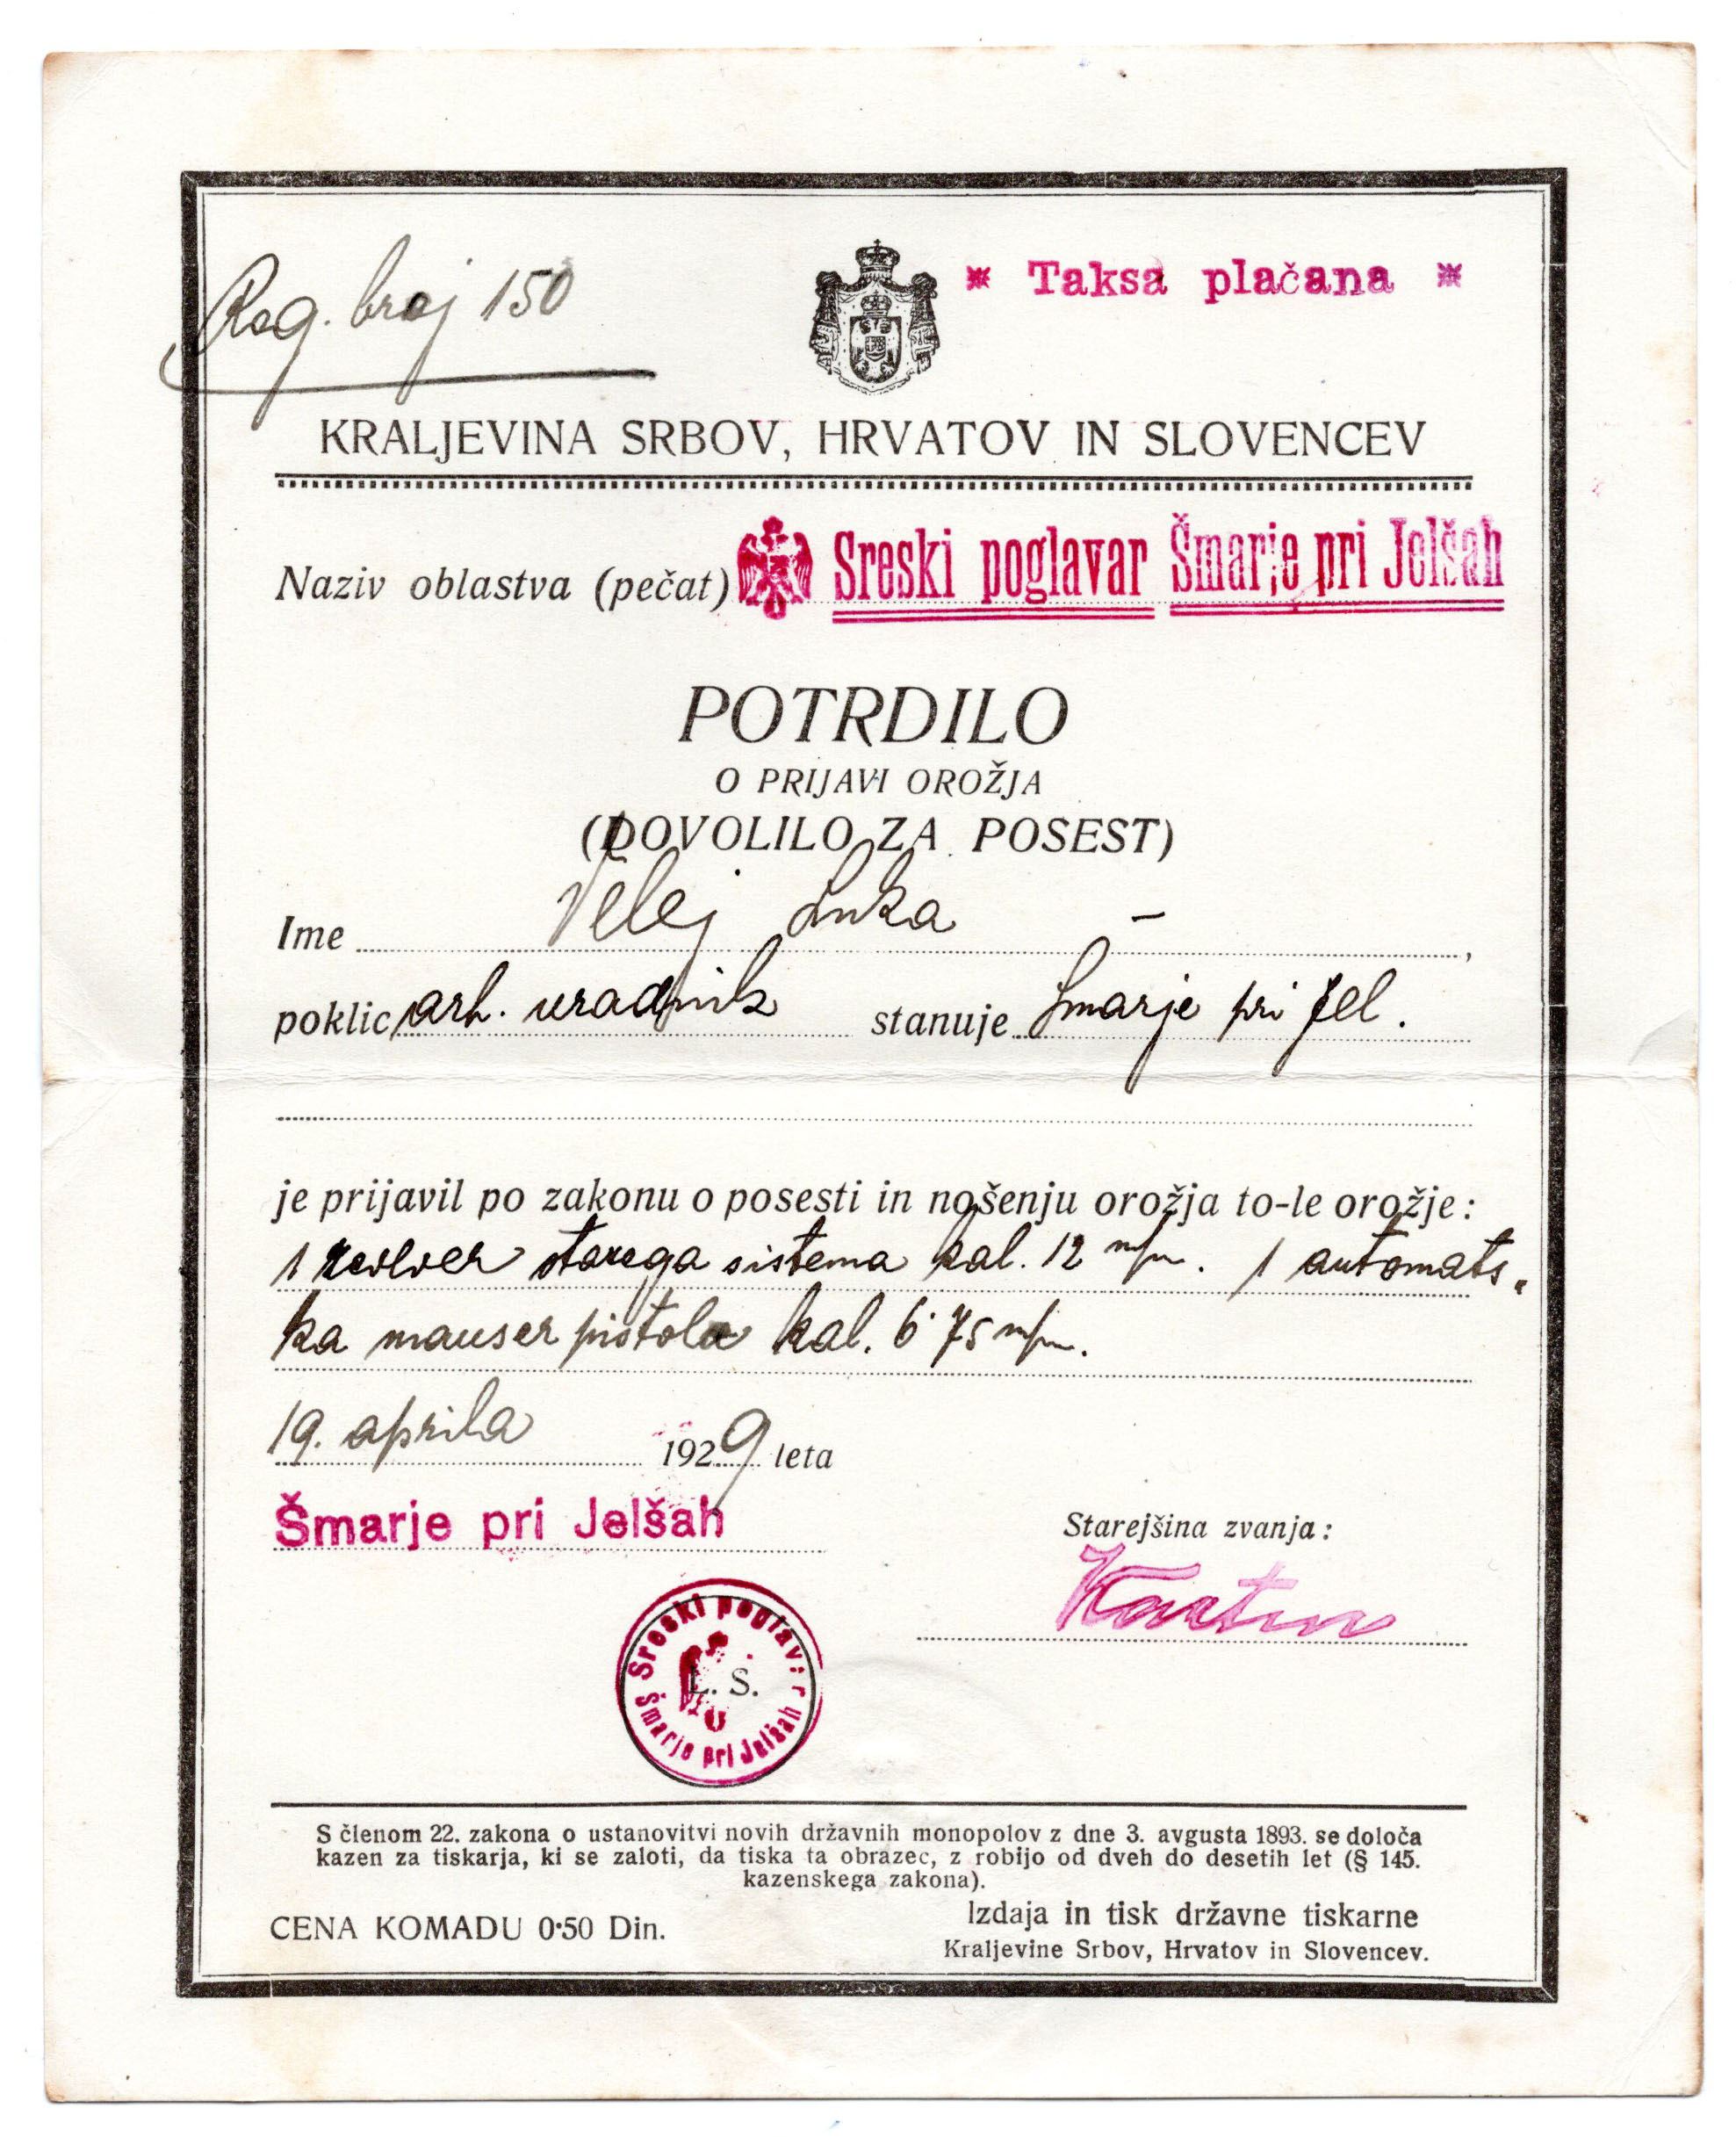 Reg. broj 150
* Taksa plačana *
KRALJEVINA SRBOV, HRVATOV IN SLOVENCEV
Naziv oblastva (pečat) Sreski poglavar Šmarje pri Jelšah
POTRDILO
O PRIJAVI OROŽJA
(DOVOLILO ZA POSEST)
Ime Velej Luka –,
poklic arh. uradnik stanuje Šmarje pri Jel.
je prijavil po zakonu o posesti in nošenju orožja to-le orožje:
1 revolver starega sistema kal. 12 m/m. 1 automats-
ka mauser pistola kal. 6·75 m/m.
19. aprila 1929 leta
Šmarje pri Jelšah
Starejšina zvanja:
Sreski poglavar
L. S.
Šmarje pri Jelšah
S členom 22. zakona o ustanovitvi novih državnih monopolov z dne 3. avgusta 1893. se določa
kazen za tiskarja, ki se zaloti, da tiska ta obrazec, z robijo od dveh do desetih let (§ 145.
kazenskega zakona).
CENA KOMADU 0·50 Din.
Izdaja in tisk državne tiskarne
Kraljevine Srbov, Hrvatov in Slovencev.